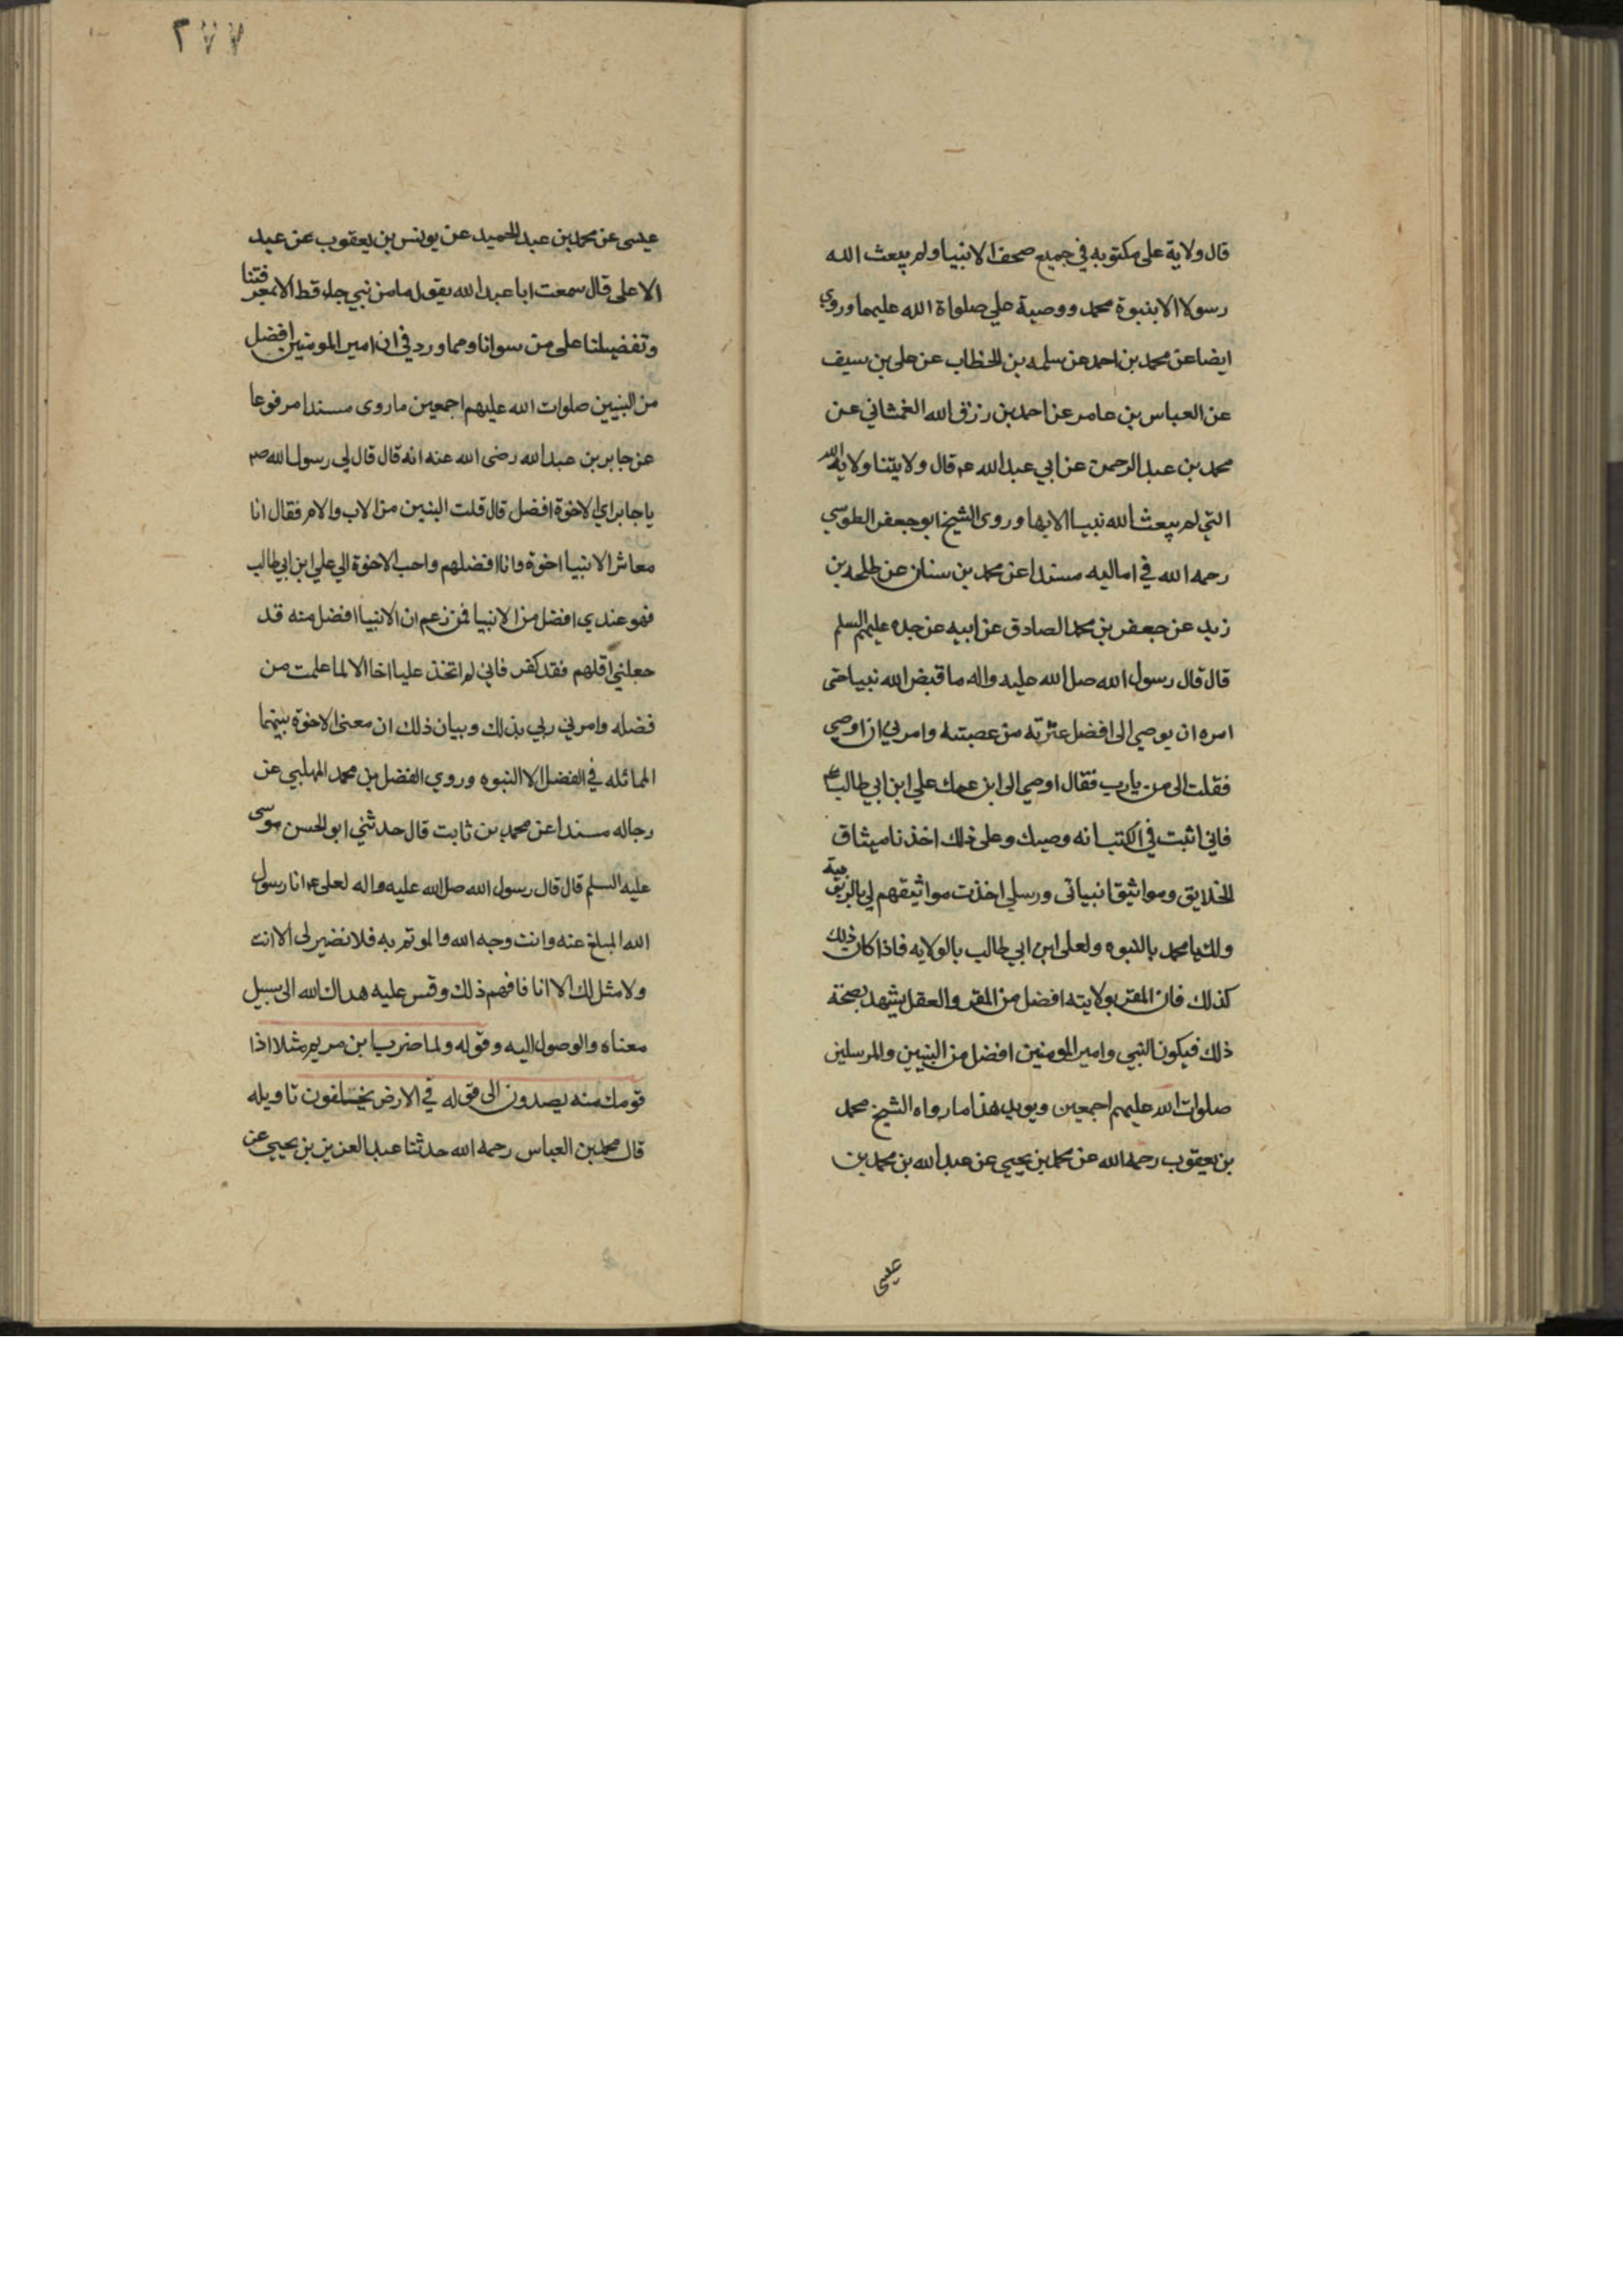 قال ولاية على مكتوبه في جميع صحف الانبيا ولم يبعث الله
رسولا الا بنبوة محمد ووصية علي صلواة الله عليهما وروي
ايضا عن محمد بن احمد عن سلمه بن الخطاب عن على بن سيف
عن العباس بن عامر عن احمد بن رزق الله الغمشاني عن
محمد بن عبد الرحمن عن ابي عبد الله عم قال ولايتنا ولاية الله
التي لم يبعث الله نبيا الا بها وروى الشيخ ابو جعفر الطوسي
رحمه الله في اماليه مسندا عن محمد بن سنان عن طلحه بن
زيد عن جعفر بن محمد الصادق عن ابيه عن جده عليهم السلم
قال قال رسول الله صل الله عليه واله ما قبض الله نبيا حتى
امره ان يوصي الى افضل عترته من عصبته وامرني ان اوصي
فقلت الى من يارب فقال اوصي الى ابن عمك علي ابن ابي طالب عم
فاني اثبت في الكتب انه وصيك وعلى ذلك اخذنا ميثاق
الخلايق ومواثيق انبياتى ورسلي اخذت مواثيقهم لي بالربوبية
ولك يا محمد بالنبوه ولعلى ابن ابي طالب بالولايه فاذا كان ذلك
كذلك فان المقر بولايته افضل من المقر والعقل يشهد بصحة
ذلك فيكون النبي وامير المومنين افضل من النبيين والمرسلين
صلوات الله عليهم اجمعين ويويد هذا ما رواه الشيخ محمد
بن يعقوب رحمه الله عن محمد بن يحيى عن عبد الله بن محمد بن
عيسى
٢٧٧
عيسى عن محمد بن عبد الحميد عن يونس بن يعقوب عن عبد
الاعلى قال سمعت ابا عبد الله يقول ما من نبي جاء قط الا بمعرفتنا
وتفضيلنا على من سوانا ومما ورد في ان امير المومنين افضل
من النبيين صلوات الله عليهم اجمعين ما روى مسندا مرفوعا
عن جابر بن عبد الله رضى الله عنه انه قال قال لي رسول الله صم
يا جابر اي الاخوة افضل قال قلت البنين من الاب والام فقال انا
معاشر الانبيا اخوة وانا افضلهم واحب الاخوة الي علي ابن ابي طالب
فهو عندي افضل من الانبيا فمن زعم ان الانبيا افضل منه قد
جعلني اقلهم فقد كفر فاني لم اتخذ عليا اخا الا لما علمت من
فضله وامرني ربي بذلك وبيان ذلك ان معنى الاخوة بينهما
المماثله في الفضل الا النبوه وروي الفضل بن محمد المهلبي عن
رجاله مسندا عن محمد بن ثابت قال حدثني ابو الحسن موسى
عليه السلم قال قال رسول الله صل الله عليه واله لعلى عم انا رسول
الله المبلغ عنه وانت وجه الله والموتم به فلا نضير لى الا انت
ولا مثل لك الا انا فافهم ذلك وقس عليه هداك الله الى سبيل
معناه والوصول اليه وقوله ولما ضرب ابن مريم مثلا اذا
قومك منه يصدون الى قوله في الارض يخلفون تاويله
قال محمد بن العباس رحمه الله حدثنا عبد العزيز بن يحيى عن